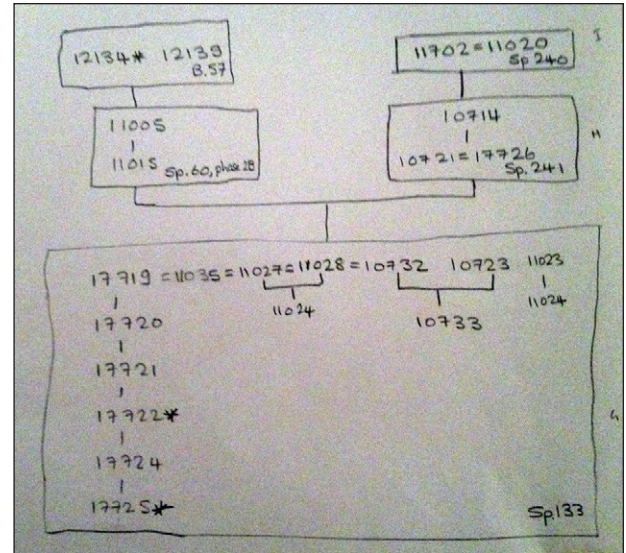 12134* 12139
B.57
11702=11020
Sp 240
I
11005
11015 Sp.60, phase 2B
10714
10721=17726
Sp.241
H
17719=11035=11027=11028=10732 10723 11023
11024
10733
11024
17720
17721
17722*
G
17724
17725*
Sp.133